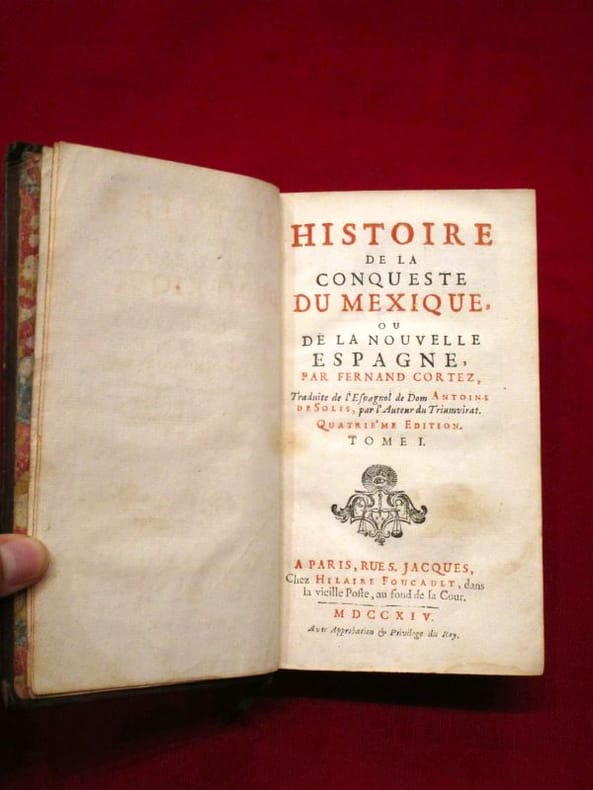 HISTOIRE
DE LA
CONQUESTE
DU MEXIQUE,
OU
DE LA NOUVELLE
ESPAGNE,
PAR FERNAND CORTEZ,
Traduite de l'Espagnol de Dom ANTOINE
DE SOLIS, par l'Auteur du Triumvirat.
QUATRIE'ME EDITION.
TOME I.
A PARIS, RUE S. JACQUES,
Chez HILAIRE FOUCAULT, dans
la vieille Poste, au fond de la Cour.
MDCCXIV.
Avec Approbation & Privilege du Roy.